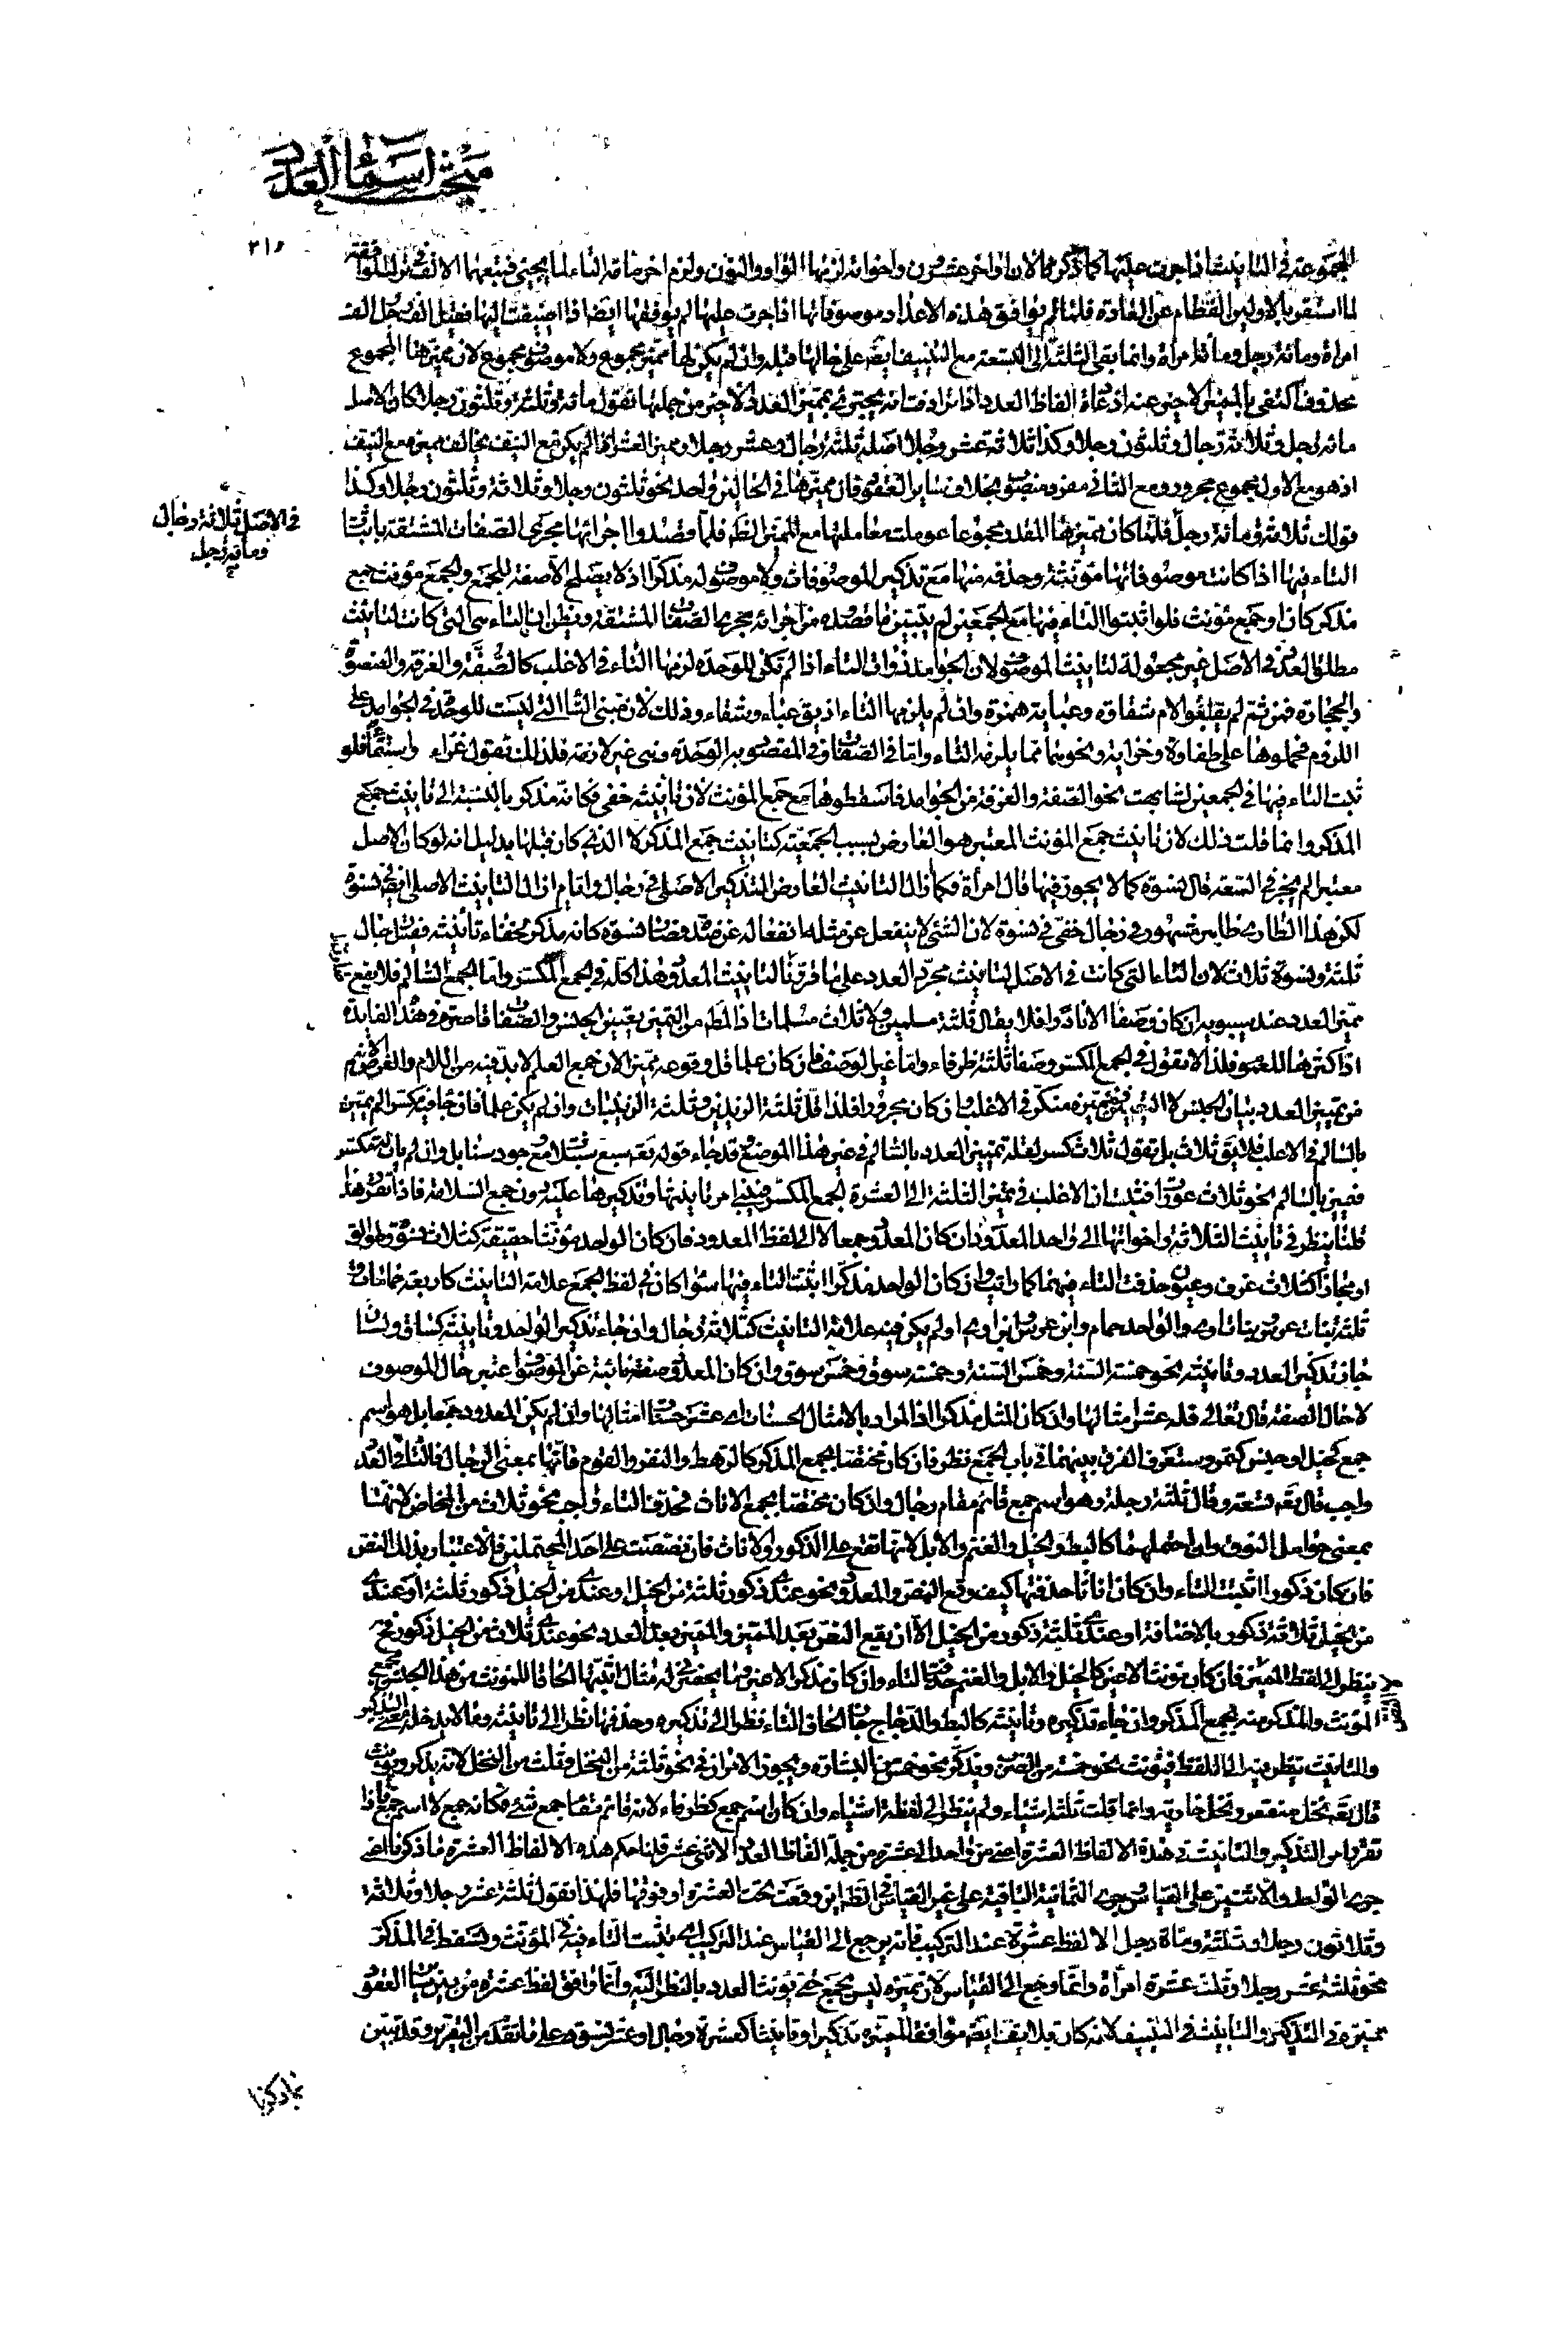 مبحث اسماء العدد
٣١٥
المجموعة في التانيث اذا جرت عليها كما ذكرنا لان اواخر عشرون واخواته لزمها الواو والنون ولزم اخر مائة التاء لما يجيئ فيتبعهما الالف
لما استقر بالاولين القطام عن العادة فلما لم يوافق هذه الاعداد موصوفاتها اذا جرت عليها لم يوافقها ايضا اذا اضيفت اليها فقيل الف رجل الف
امراة ومائة رجل ومائة امراة وانما بقى الثلثة الى التسعة مع التنييف ايضا على حالها قبله وان لم يكن لها مميز مجموع ولا موصوف مجموع لان مميزها المجموع
محذوف اكتفى بالمميز الاخير عنه اذ عادة الفاظ العدد اذا ترادفت ان يجتزئ بمميز العدد الاخير من جملتها تقول مائة وثلثة وثلثون رجلا كان الاصل
مائة رجل وثلاثة رجال وثلثون رجلا وكذا ثلاثة عشر رجلا اصله ثلثة رجال وعشر رجلا ومميز العشر اذا لم يكن مع النيف يخالف مميزه مع النيف
اذ هو مع الاول مجموع مجرور ومع الثاني مفرد منصوب بخلاف ساير العقود فان مميزها في الحالين واحد نحو ثلثون رجلا وثلاثة وثلثون رجلا وكذا
قولك ثلاثة ومائة رجل فلما كان مميزها المقدر مجموعا عوملت معاملتها مع المميز الظاهر فلما قصدوا اجرائها مجرى الصفات المشتقة باثبات
في الاصل ثلاثة رجال
ومائة رجل
التاء فيها اذا كانت موصوفاتها مؤنثة وحذفه منها مع تذكير الموصوفات ولا موصوف له مذكرا اذ لا يصلح الا صفة للجمع والجمع مؤنث جمع
مذكر كان او جمع مؤنث فلو اثبتوا التاء فيها مع الجمعين لم يتبين ما قصدوه من اجرائه مجرى الصفات المشتقة ويظن ان التاء هي التي كانت لتانيث
مطلق العدد في الاصل غير مجعولة لتانيث الموصوف لان الجوامد ذوات التاء اذا لم تكن للوحدة لزمها التاء في الاغلب كالصفة والغرفة
والحجارة فمن ثم لم يقلبوا لام شقاوة وعباية همزة وان لم يلزمها التاء اذ يق عباء وشقاء وذلك لان مبنى التاء التي ليست للوحدة في الجوامد على
اللزوم فحملوها على طفاوة وخزاية ونحوهما مما يلزمه التاء واما في الصفات وفي المقصود به الوحدة فهي غير لازمة فلذلك تقول غزاء واستقاء فلو
ثبت التاء فيها في الجمعين لشابهت نحو الصفة والغرفة من الجوامد فاسقطوها مع جمع المؤنث لان تانيثه خفى فكانه مذكر بالنسبة الى تانيث جمع
المذكر وانما قلت ذلك لان تانيث جمع المؤنث المعتبر هو العارض بسبب الجمعية كتانيث جمع المذكر لا الذي كان قبلها بدليل انه لو كان الاصل
معتبرا لم يجز في السعة قال نسوة كما لا يجوز فيها قال امرأة فكما زال التانيث العارض التذكير الاصلي في رجال وايام ازال التانيث الاصلي ايضا في نسوة
لكن هذا الطارى ظاهر مشهور في رجال خفي في نسوة لان الشئ لا ينفعل عن مثله انفعاله عن ضده فصار نسوة كانه مذكر لخفاء تانيثه فقيل رجال
ثلثة ونسوة ثلاث لان التاء التي كانت في الاصل لتانيث مجرد العدد على ما قررنا لتانيث المعدود هذا كله في الجمع المكسر واما الجمع السالم فلا يقع
مميز العدد عند سيبويه ان كان وصفا الا نادرا فلا يقال ثلثة مسلمين ولا ثلاث مسلمات اذ المط من التمييز تعيين الجنس والصفات قاصرة في هذه الفايدة
اذ اكثرها للعموم فلذا لا تقول في الجمع المكسر وصفا ثلثة ظرفاء واما غير الوصف فان كان علما قل وقوعه مميزا لان جمع العلم لا بد فيه من اللام والغرض الاهم
من تمييز العدد بيان الجنس لا التعيين فمميزه منكر في الاغلب وان كان مجرورا فلذا قل ثلثة الزيدين وثلثة الزينبات وان لم يكن علما فان جاء فيه مكسر لم يميز
بالسالم في الاغلب فلا يق ثلاث بل تقول ثلاث كسر لقلة تمييز العدد بالسالم في غير هذا الموضع وقد جاء قوله تعه سبع سنبلات مع وجود سنابل وان لم يات له مكسر
فميز بالسالم نحو ثلاث عورات فثبت ان الاغلب في مميز الثلثة الى العشرة الجمع المكسر فبنى امر تانيثها وتذكيرها عليه دون جمع السلامة فاذا تقرر هذا
قلنا ينظر في تانيث الثلاثة واخواتها الى واحد المعدود ان كان المعدود جمعا لا الى لفظ المعدود فان كان الواحد مؤنثا حقيقة كثلاث نسوة وطوالق
او مجازا كثلاث غرف وعيون حذفت التاء فيهما كما رايت وان كان الواحد مذكرا اثبتت التاء فيها سواء كان في لفظ الجمع علامة التانيث كاربعة حمامات و
ثلثة بنات عرس وبنات اوى والواحد حمام وابن عرس وابن اوى او لم يكن فيه علامة التانيث كثلاثة رجال وان جاء تذكير الواحد وتانيثه كساق ولسان
جاز تذكير العدد وتانيثه نحو خمسة السنة وخمس السنة وخمسة سوق وخمس سوق وان كان المعدود صفة نائبة عن الموصوف اعتبر حال الموصوف
لا حال الصفة قال تعالى فله عشر امثالها وان كان المثل مذكرا اذ المراد بالامثال الحسنات اى عشر حسنات امثالها وان لم يكن المعدود جمعا بل هو اسم
جمع كخيل او جنس كتمر وستعرف الفرق بينهما في باب الجمع نظر فان كان مختصا بجمع المذكر كالرهط والنفر والقوم فانها بمعنى الرجال فالتاء في العدد
واجب قال تعه تسعة وقال ثلثة رجلة وهو اسم جمع قائم مقام رجال وان كان مختصا بجمع الاناث فحذف التاء واجب نحو ثلاث من المخاض لانها
بمعنى حوامل النوق وان احتملهما كالبط والخيل والغنم والابل لانها تقع على الذكور والاناث فان نصصت على احد المحتملين فالاعتبار بذلك النص
فان كان ذكورا اثبتت التاء وان كان اناثا حذفتها كيف وقع النص والمعدود نحو عندي ذكور ثلثة من الخيل او عندي من الخيل ذكور ثلثة او عندي
من الخيل ثلاثة ذكور بالاضافة او عندي ثلثة ذكور من الخيل الا ان يقع النص بعد المميز والمميز بعد العدد نحو عندي ثلاث من الخيل ذكور فح
ينظر الى لفظ المميز فان كان مؤنثا لا غير كالخيل والابل والغنم حذفت التاء وان كان مذكرا لا غير وما يحضرني له مثال اثبتها الحاقا للمؤنث من هذا الجنس بجمع
المؤنث والمذكر منه بجمع المذكر وان جاء تذكيره وتانيثه كالبط والدجاج جاز الحاق التاء نظرا الى تذكيره وحذفها نظرا الى تانيثه وما لا يدخله معنى التذكير
والتانيث ينظر فيه الى اللفظ فيؤنث نحو خمسة من الضرب ويذكر نحو خمس من البشارة ويجوز الامران في نحو ثلثة من النخل وثلث من النخل لانه يذكر ويؤنث
قال تعه نخل منقعر ونخل خاوية وانما قلت ثلثة اشياء ولم ينظر الى لفظة اشياء وان كان اسم جمع كطرفاء لانه قائم مقام جمع شئ فكانه جمع لا اسم جمع فاذا
تقرر امر التذكير والتانيث في هذه الالفاظ العشرة اعني من واحد الى عشرة من جملة الفاظ العدد الاثنى عشر قلنا حكم هذه الالفاظ العشرة ما ذكرنا من
جرى الواحد والاثنين على القياس وجرى الثمانية الباقية على غير القياس في الظاهر اين وقعت تحت العشرة او فوقها فلهذا تقول ثلثة عشر رجلا وثلاثة
وثلاثون رجلا وثلثة ومائة رجل الا لفظ عشرة عند التركيب فانه يرجع الى القياس عند التركيب اى تثبت التاء فيه في المؤنث وتسقط في المذكر
نحو ثلثة عشر رجلا وثلث عشرة امرأة وانما رجع الى القياس لان مميزه ليس بجمع حتى يؤنث العدد بالنظر اليه وانما وافق لفظ عشرة من بين ساير العقود
مميزه في التذكير والتانيث في التنييف لانه كان قبله ايضا موافقا لمميزه تذكيرا وتانيثا كعشرة رجال وعشر نسوة على ما تقدم من التقرير وقد تبين
بما ذكرنا